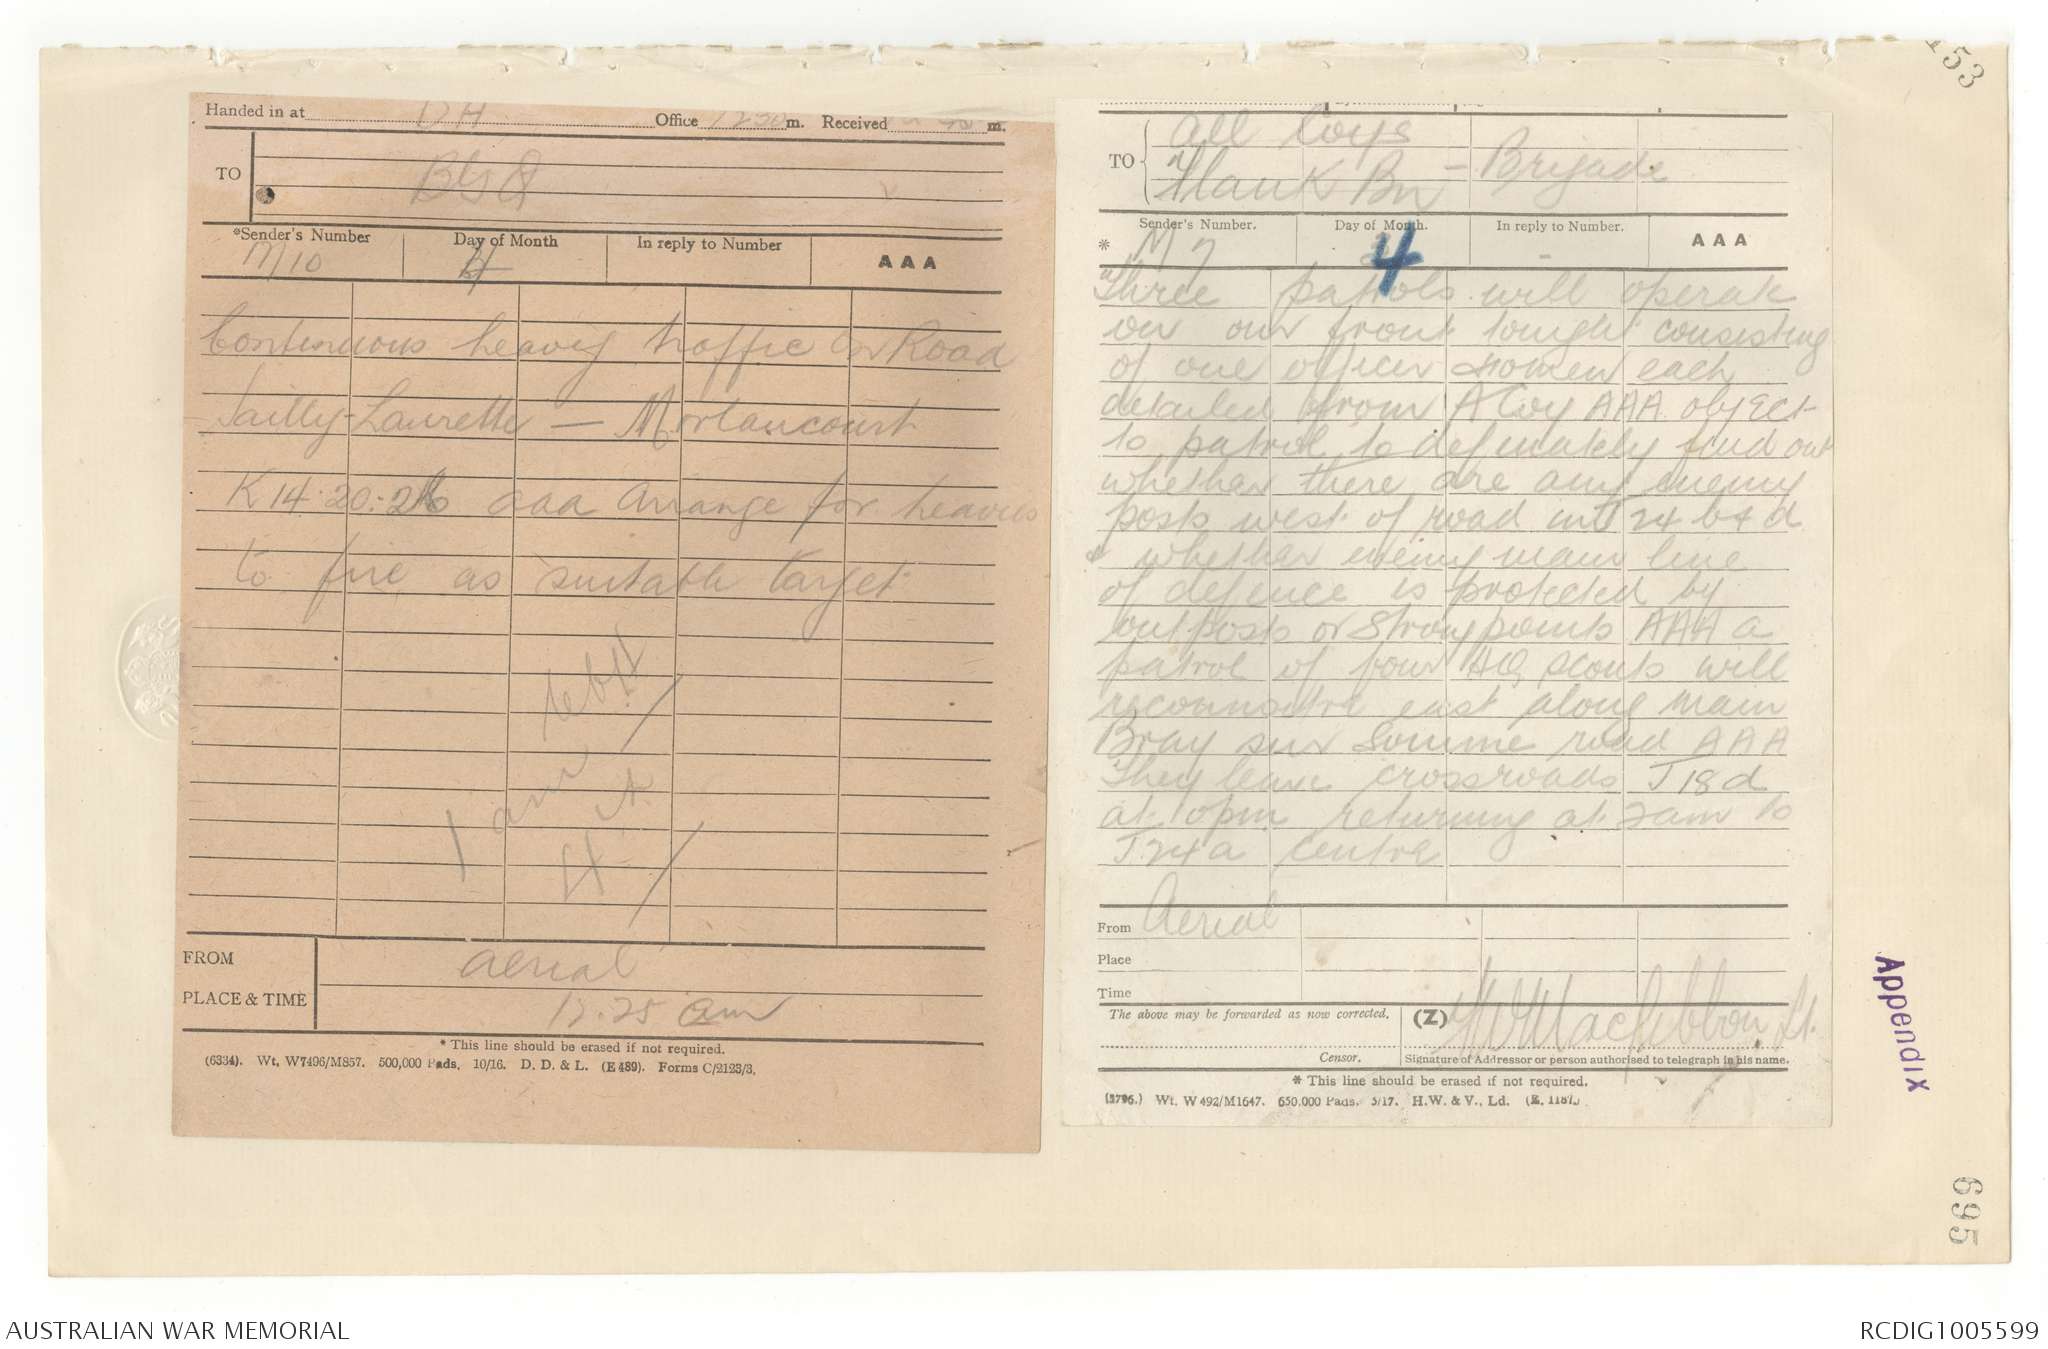 153
Handed in at DH Office 1230 m. Received m.
TO
*Sender's Number Day of Month In reply to Number AAA
M10 4
Continuous heavy traffic on Road
Sailly-Laurette — Morlancourt
K14.20.26 aaa Arrange for heavies
to fire as suitable target
1 am
FROM Aerial
PLACE & TIME 12.25 am
* This line should be erased if not required.
(6334). Wt. W7496/M857. 500,000 Pads. 10/16. D. D. & L. (E 489). Forms C/2123/3.
TO All Coys
Flank Bn - Brigade
Sender's Number. Day of Month. In reply to Number. AAA
* M 7 4 -
Three patrols will operate
on our front tonight consisting
of one officer men each
detailed from A Coy AAA object
to patrol to definately find out
whether there are any enemy
posts west of road in 24 b & d
& whether enemy main line
of defence is protected by
outposts or strongpoints AAA a
patrol of four HQ scouts will
reconnoitre east along main
Bray sur Somme road AAA
They leave crossroads J18d
at 10pm returning at 2am to
J24a centre
From Aerial
Place
Time
The above may be forwarded as now corrected. (Z) MacGibbon Lt.
Censor. Signature of Addressor or person authorised to telegraph in his name.
* This line should be erased if not required.
(3796.) Wt. W 492/M1647. 650,000 Pads. 5/17. H.W. & V., Ld. (E. 1187.)
Appendix
695
AUSTRALIAN WAR MEMORIAL RCDIG1005599